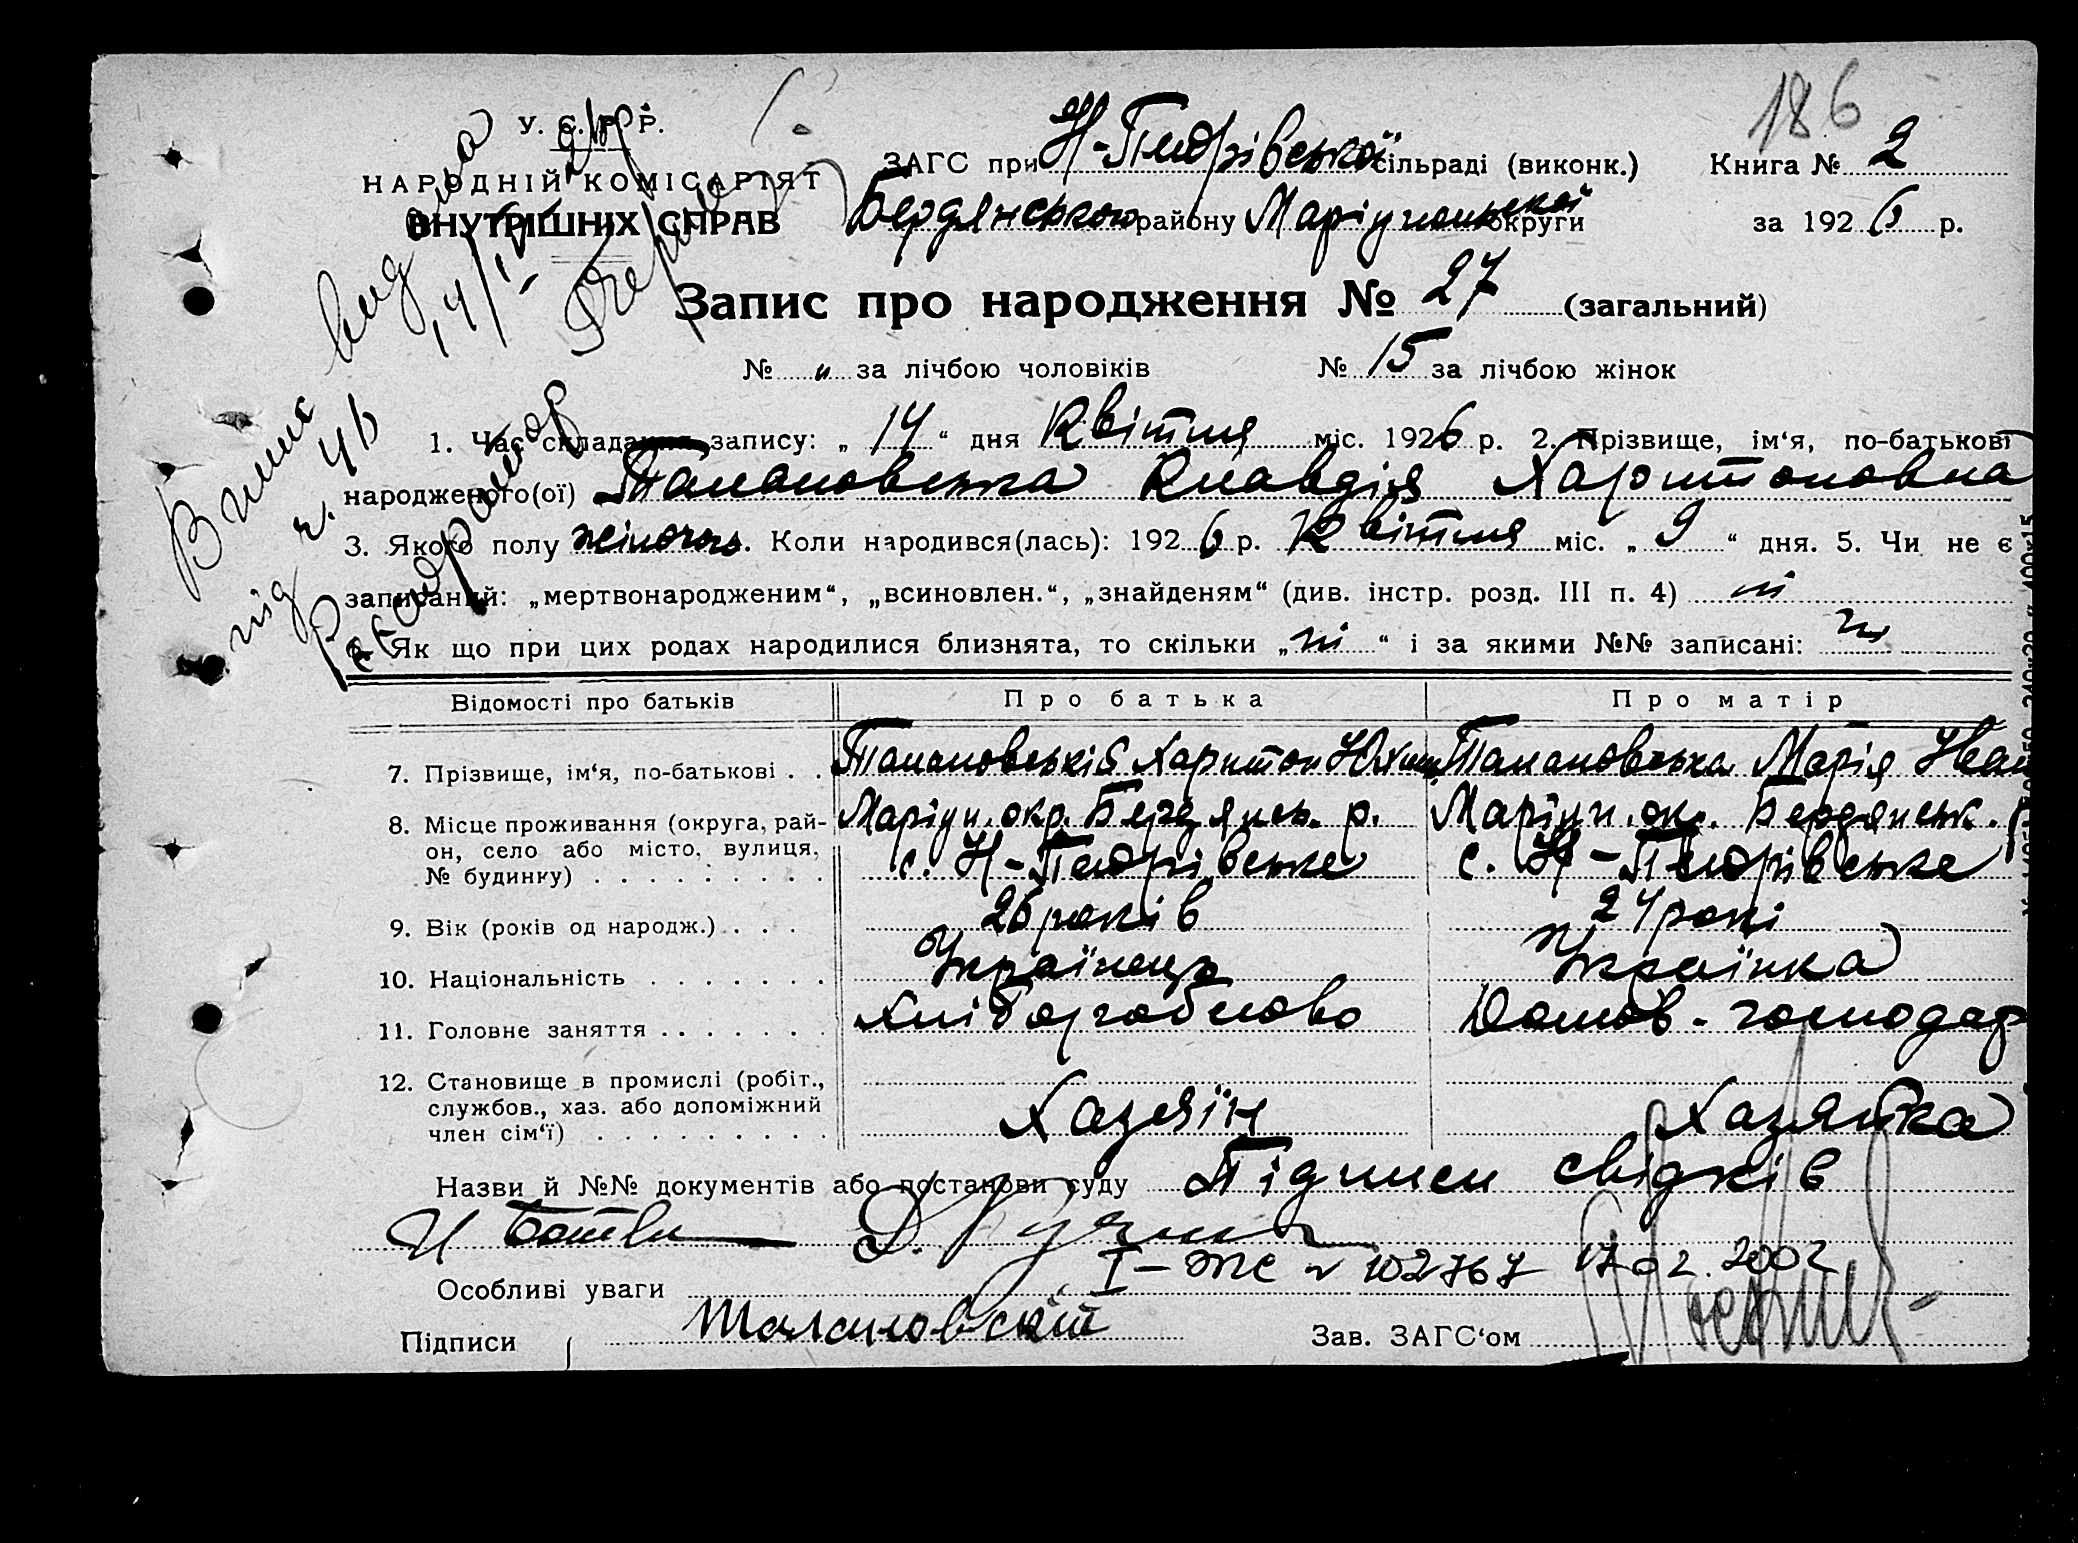 186
У. С. Р. Р.
НАРОДНІЙ КОМІСАРІЯТ
ВНУТРІШНІХ СПРАВ
ЗАГС при Н-Петрівської сільраді (виконк.) Книга № 2
Бердянського району Маріупольської округи за 1926 р.
Запис про народження № 27 (загальний)
№ „ за лічбою чоловіків № 15 за лічбою жінок
Витяг видано
під ч. 46
14/IV
Реєстратор
1. Час складання запису: „14“ дня Квітня міс. 1926 р. 2. Прізвище, ім‘я, по-батькові
народженого(ої) Талановська Клавдія Харитоновна
3. Якого полу жіночого. Коли народився(лась): 1926 р. Квітня міс. „9“ дня. 5. Чи не є
записаний: „мертвонародженим“, „всиновлен.“, „знайденям“ (див. інстр. розд. III п. 4) ні
6. Як що при цих родах народилися близнята, то скільки „ні“ і за якими №№ записані: ні
Відомості про батьків Про батька Про матір
7. Прізвище, ім‘я, по-батькові . . Талановській Харитон Юхим. Талановська Марія Іван
8. Місце проживання (округа, рай-
он, село або місто, вулиця,
№ будинку) . . . . . . . . .
Маріуп. окр. Бердянсь. р. Маріуп. окр. Бердянськ. р
с. Н-Петрівське с. Н-Петрівське
9. Вік (років од народж.) . . . 26 років 24 рокі
10. Національність . . . . . . . Українець Українка
11. Головне заняття . . . . . . . Хліборобство Домов. господар
12. Становище в промислі (робіт.,
службов., хаз. або допоміжний
член сім‘ї) . . . . . . . . .
Хазяїн Хазяйка
Назви й №№ документів або постанови суду Підписи свідків
Особливі уваги I-ЖС № 102767 17.02.2002
Підписи Талановскій Зав. ЗАГС‘ом